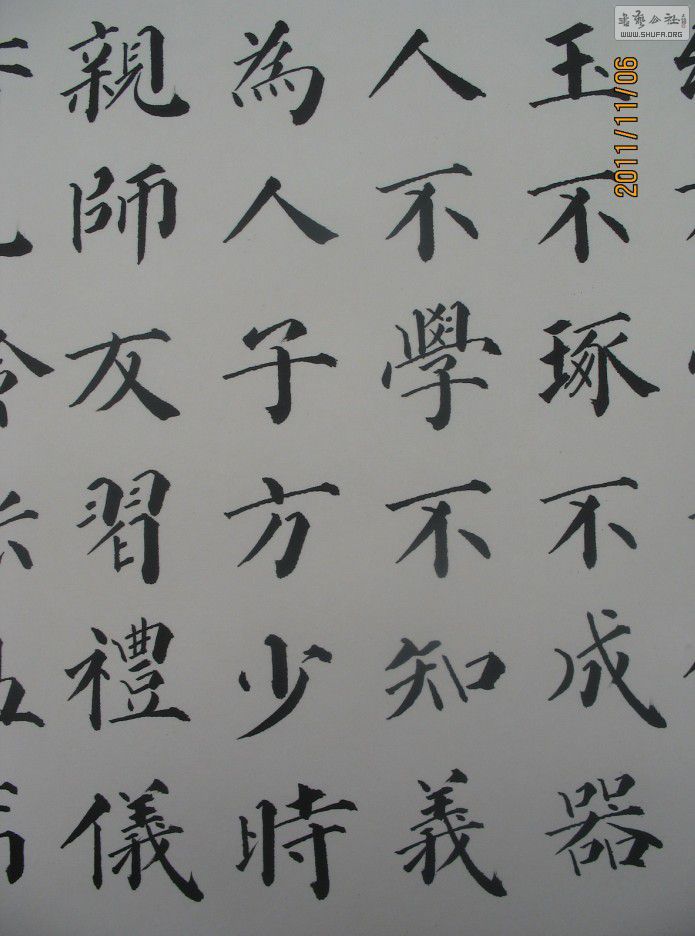 玉不琢不成器
人不學不知義
為人子方少時
親師友習禮儀
2011/11/06
书艺公社
WWW.SHUFA.ORG